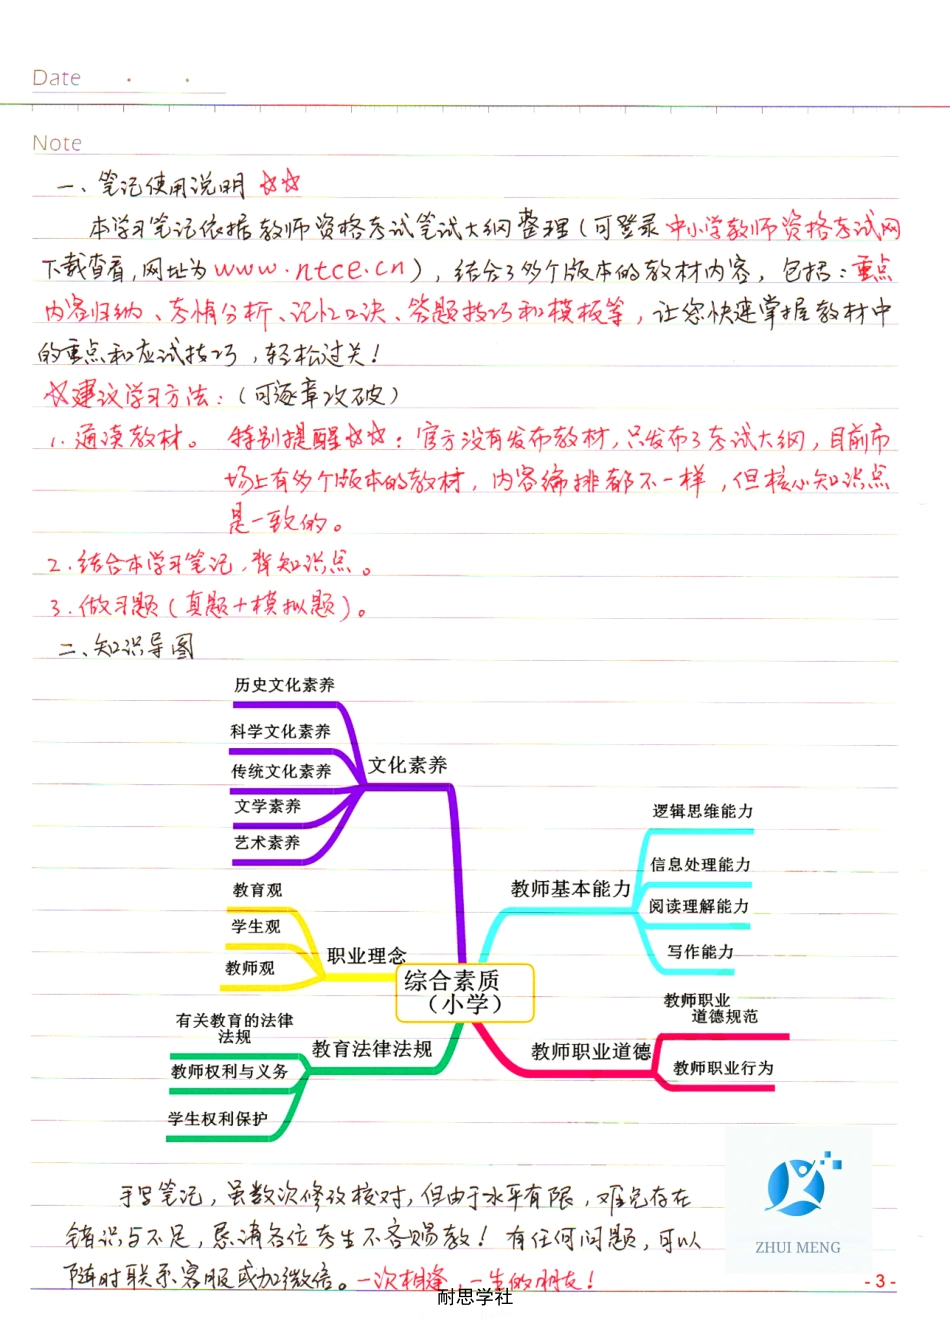 Date
Note
一、笔记使用说明 ☆☆
本学习笔记依据教师资格考试笔试大纲整理(可登录中小学教师资格考试网
下载查看,网址为www.ntce.cn),结合了多个版本的教材内容,包括:重点
内容归纳、考情分析、记忆口诀、答题技巧和模板等,让您快速掌握教材中
的重点和应试技巧,轻松过关!
☆建议学习方法:(可逐章攻破)
1.通读教材。 特别提醒☆☆:官方没有发布教材,只发布了考试大纲,目前市
场上有多个版本的教材,内容编排都不一样,但核心知识点
是一致的。
2.结合本学习笔记,背知识点。
3.做习题(真题+模拟题)。
二、知识导图
历史文化素养
科学文化素养
传统文化素养
文学素养
艺术素养
文化素养
教育观
学生观
教师观
职业理念
有关教育的法律
法规
教师权利与义务
学生权利保护
教育法律法规
综合素质
(小学)
逻辑思维能力
信息处理能力
阅读理解能力
写作能力
教师基本能力
教师职业
道德规范
教师职业行为
教师职业道德
手写笔记,虽数次修改核对,但由于水平有限,难免存在
错误与不足,恳请各位考生不吝赐教!有任何问题,可以
随时联系客服或加微信。一次相逢,一生的朋友!
ZHUI MENG
-3-
耐思学社